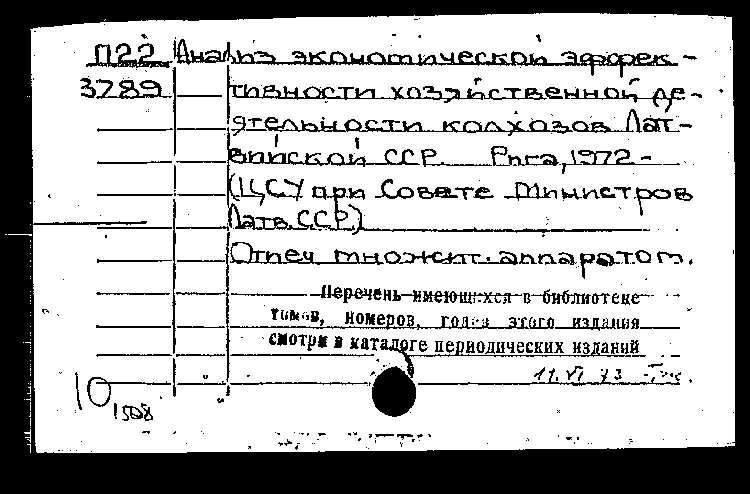 П22 Анализ экономической эффек-
3789 тивности хозяйственной де-
ятельности колхозов Лат-
вийской ССР. Рига, 1972-
(ЦСУ при Совете Министров
Латв. ССР)
Отпеч. множит. аппаратом.
Перечень имеющихся в библиотеке
томов, номеров, годов этого издания
смотри в каталоге периодических изданий
11.VI 73
10
1508